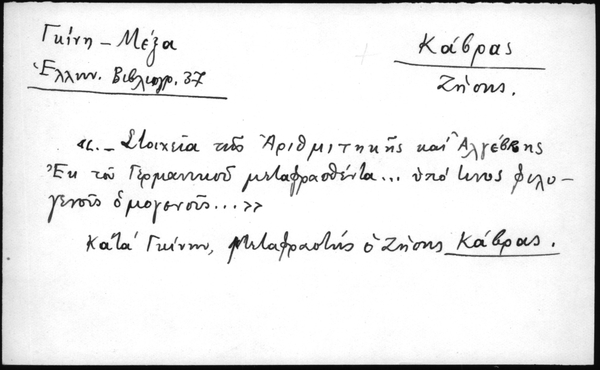 Γκίνη - Μέξα
Ἑλλην. Βιβλιογρ. 37
Κάβρας
Ζήσης.
«.- Στοιχεῖα τῆς Ἀριθμιτηκῆς καὶ Ἀλγέβρης
Ἐκ τοῦ Γερμανικοῦ μεταφρασθέντα... ὑπό τινος φιλο-
γενοῦς ὁμογενοῦς...»
Κατά Γκίνην, μεταφραστής ὁ Ζήσης Κάβρας.